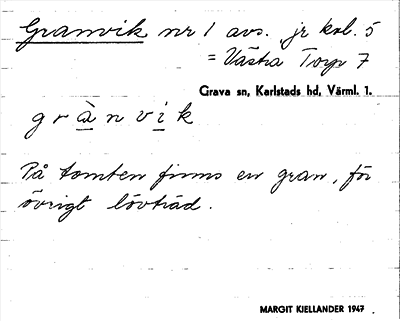 Granvik nr 1 avs. jr kol. 5
= Västra Torp 7
Grava sn, Karlstads hd, Värml. 1.
g r à n v i k
På tomten finns en gran, för
övrigt lövträd.
MARGIT KIELLANDER 1947